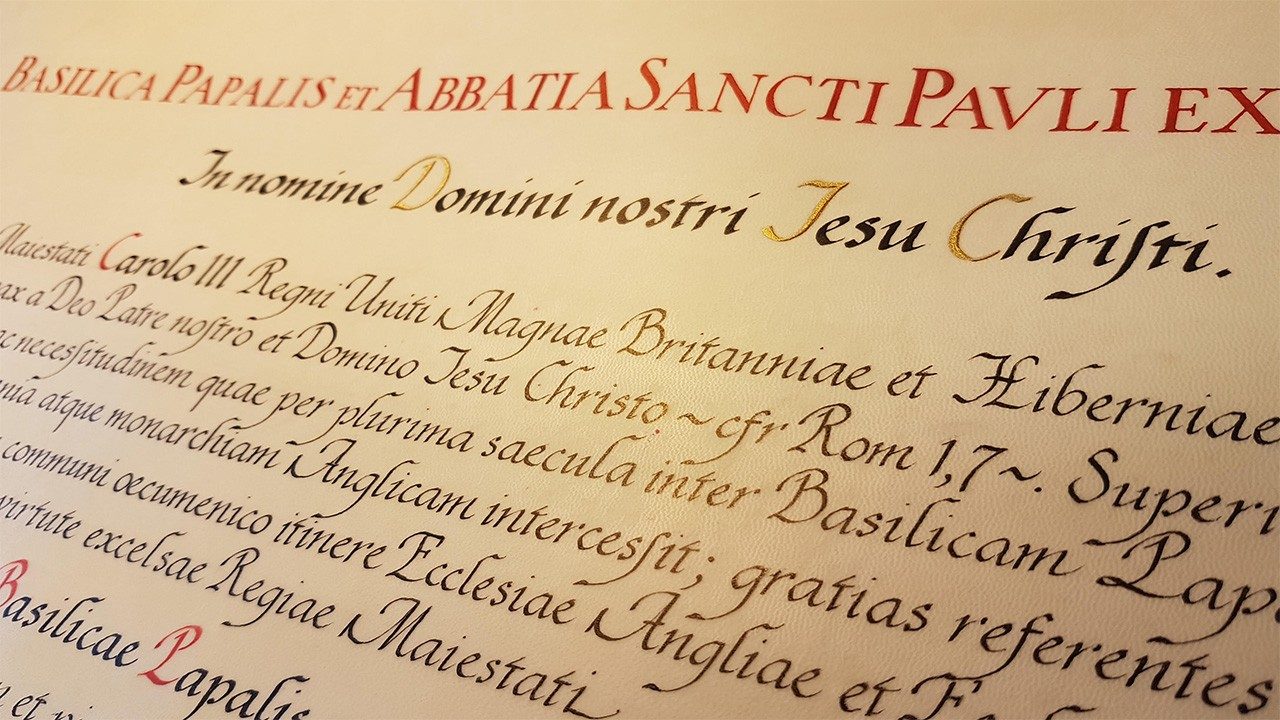 BASILICA PAPALIS ET ABBATIA SANCTI PAVLI EX
In nomine Domini nostri Jesu Chriſti.
Maiestati Carolo III Regni Uniti Magnae Britanniae et Hiberniae
pax a Deo Patre noſtro et Domino Iesu Christo ~ cfr Rom 1,7 ~. Superi
ac neceſsitudinem quae per plurima saecula inter Basilicam Pap
atque monarchiam Anglicam interceſsit; gratias referentes
communi oecumenico itinere Ecclesiae Angliae et
virtute excelsae Regiae Maiestati
Basilicae Papalis
et